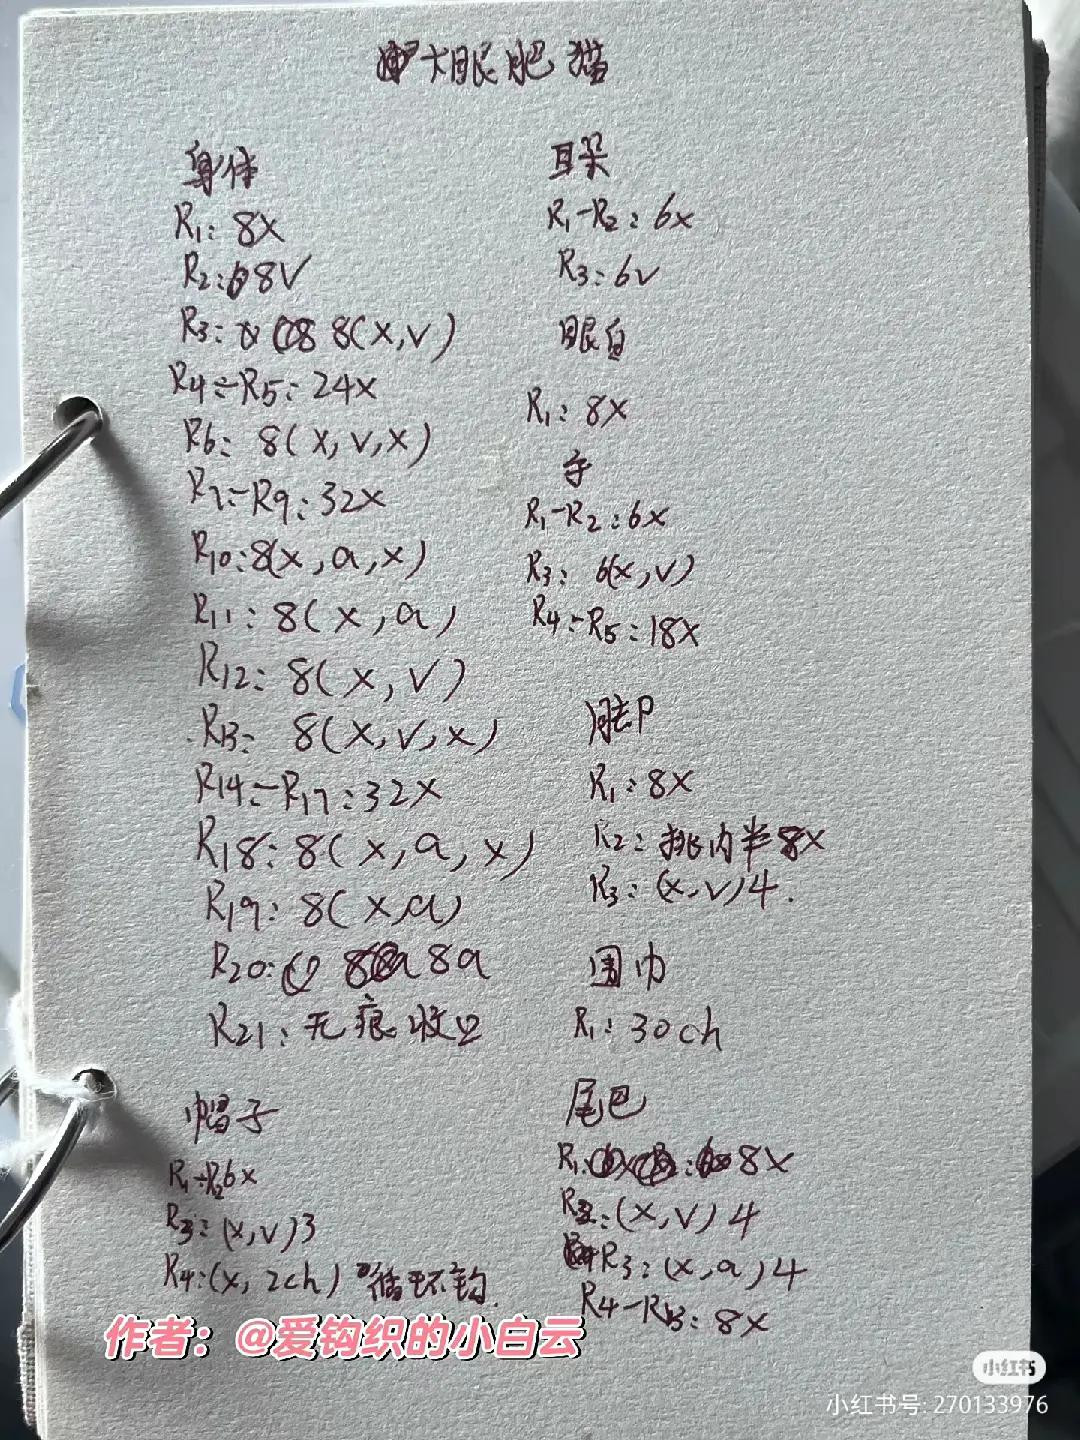 大眼肥猫
身体
R1: 8X
R2: 8V
R3: 8(X,V)
R4-R5: 24X
R6: 8(X,V,X)
R7-R9: 32X
R10: 8(X,a,X)
R11: 8(X,a)
R12: 8(X,V)
R13: 8(X,V,X)
R14-R17: 32X
R18: 8(X,a,X)
R19: 8(X,a)
R20: 8a
R21: 无痕收口
帽子
R1-R2 6X
R3: (X,V)3
R4: (X, 2ch) 循环钩.
耳朵
R1-R2: 6X
R3: 6V
眼白
R1: 8X
手
R1-R2: 6X
R3: 6(X,V)
R4-R5: 18X
R1: 8X
R2: 挑内半8X
R3: (X,V)4.
围巾
R1: 30ch
尾巴
R1: 8X
R2: (X,V)4
R3: (X,a)4
R4-R13: 8X
作者：@爱钩织的小白云
小红书
小红书号: 270133976